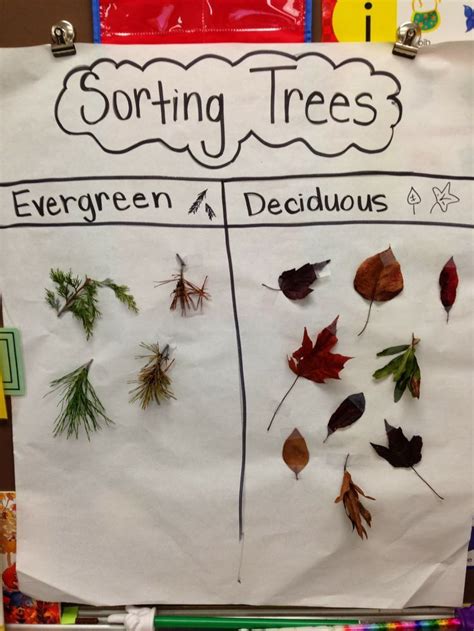 Sorting Trees
Evergreen
Deciduous
i